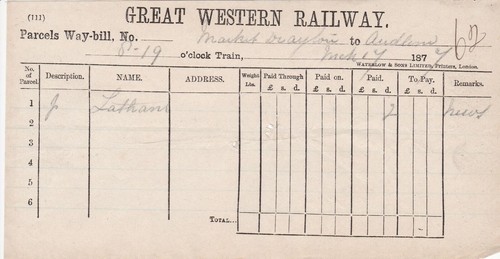 (111)
GREAT WESTERN RAILWAY.
Parcels Way-bill, No. Market Drayton to Audlem
8-19 o'clock Train, Mch 17 1877
62
WATERLOW & SONS LIMITED, Printers, London.
No. of Parcel. Description. NAME. ADDRESS. Weight Lbs. Paid Through Paid on. Paid. To Pay. Remarks.
£ s. d. £ s. d. £ s. d. £ s. d.
1 Latham 2 News
2
3
4
5
6
TOTAL...